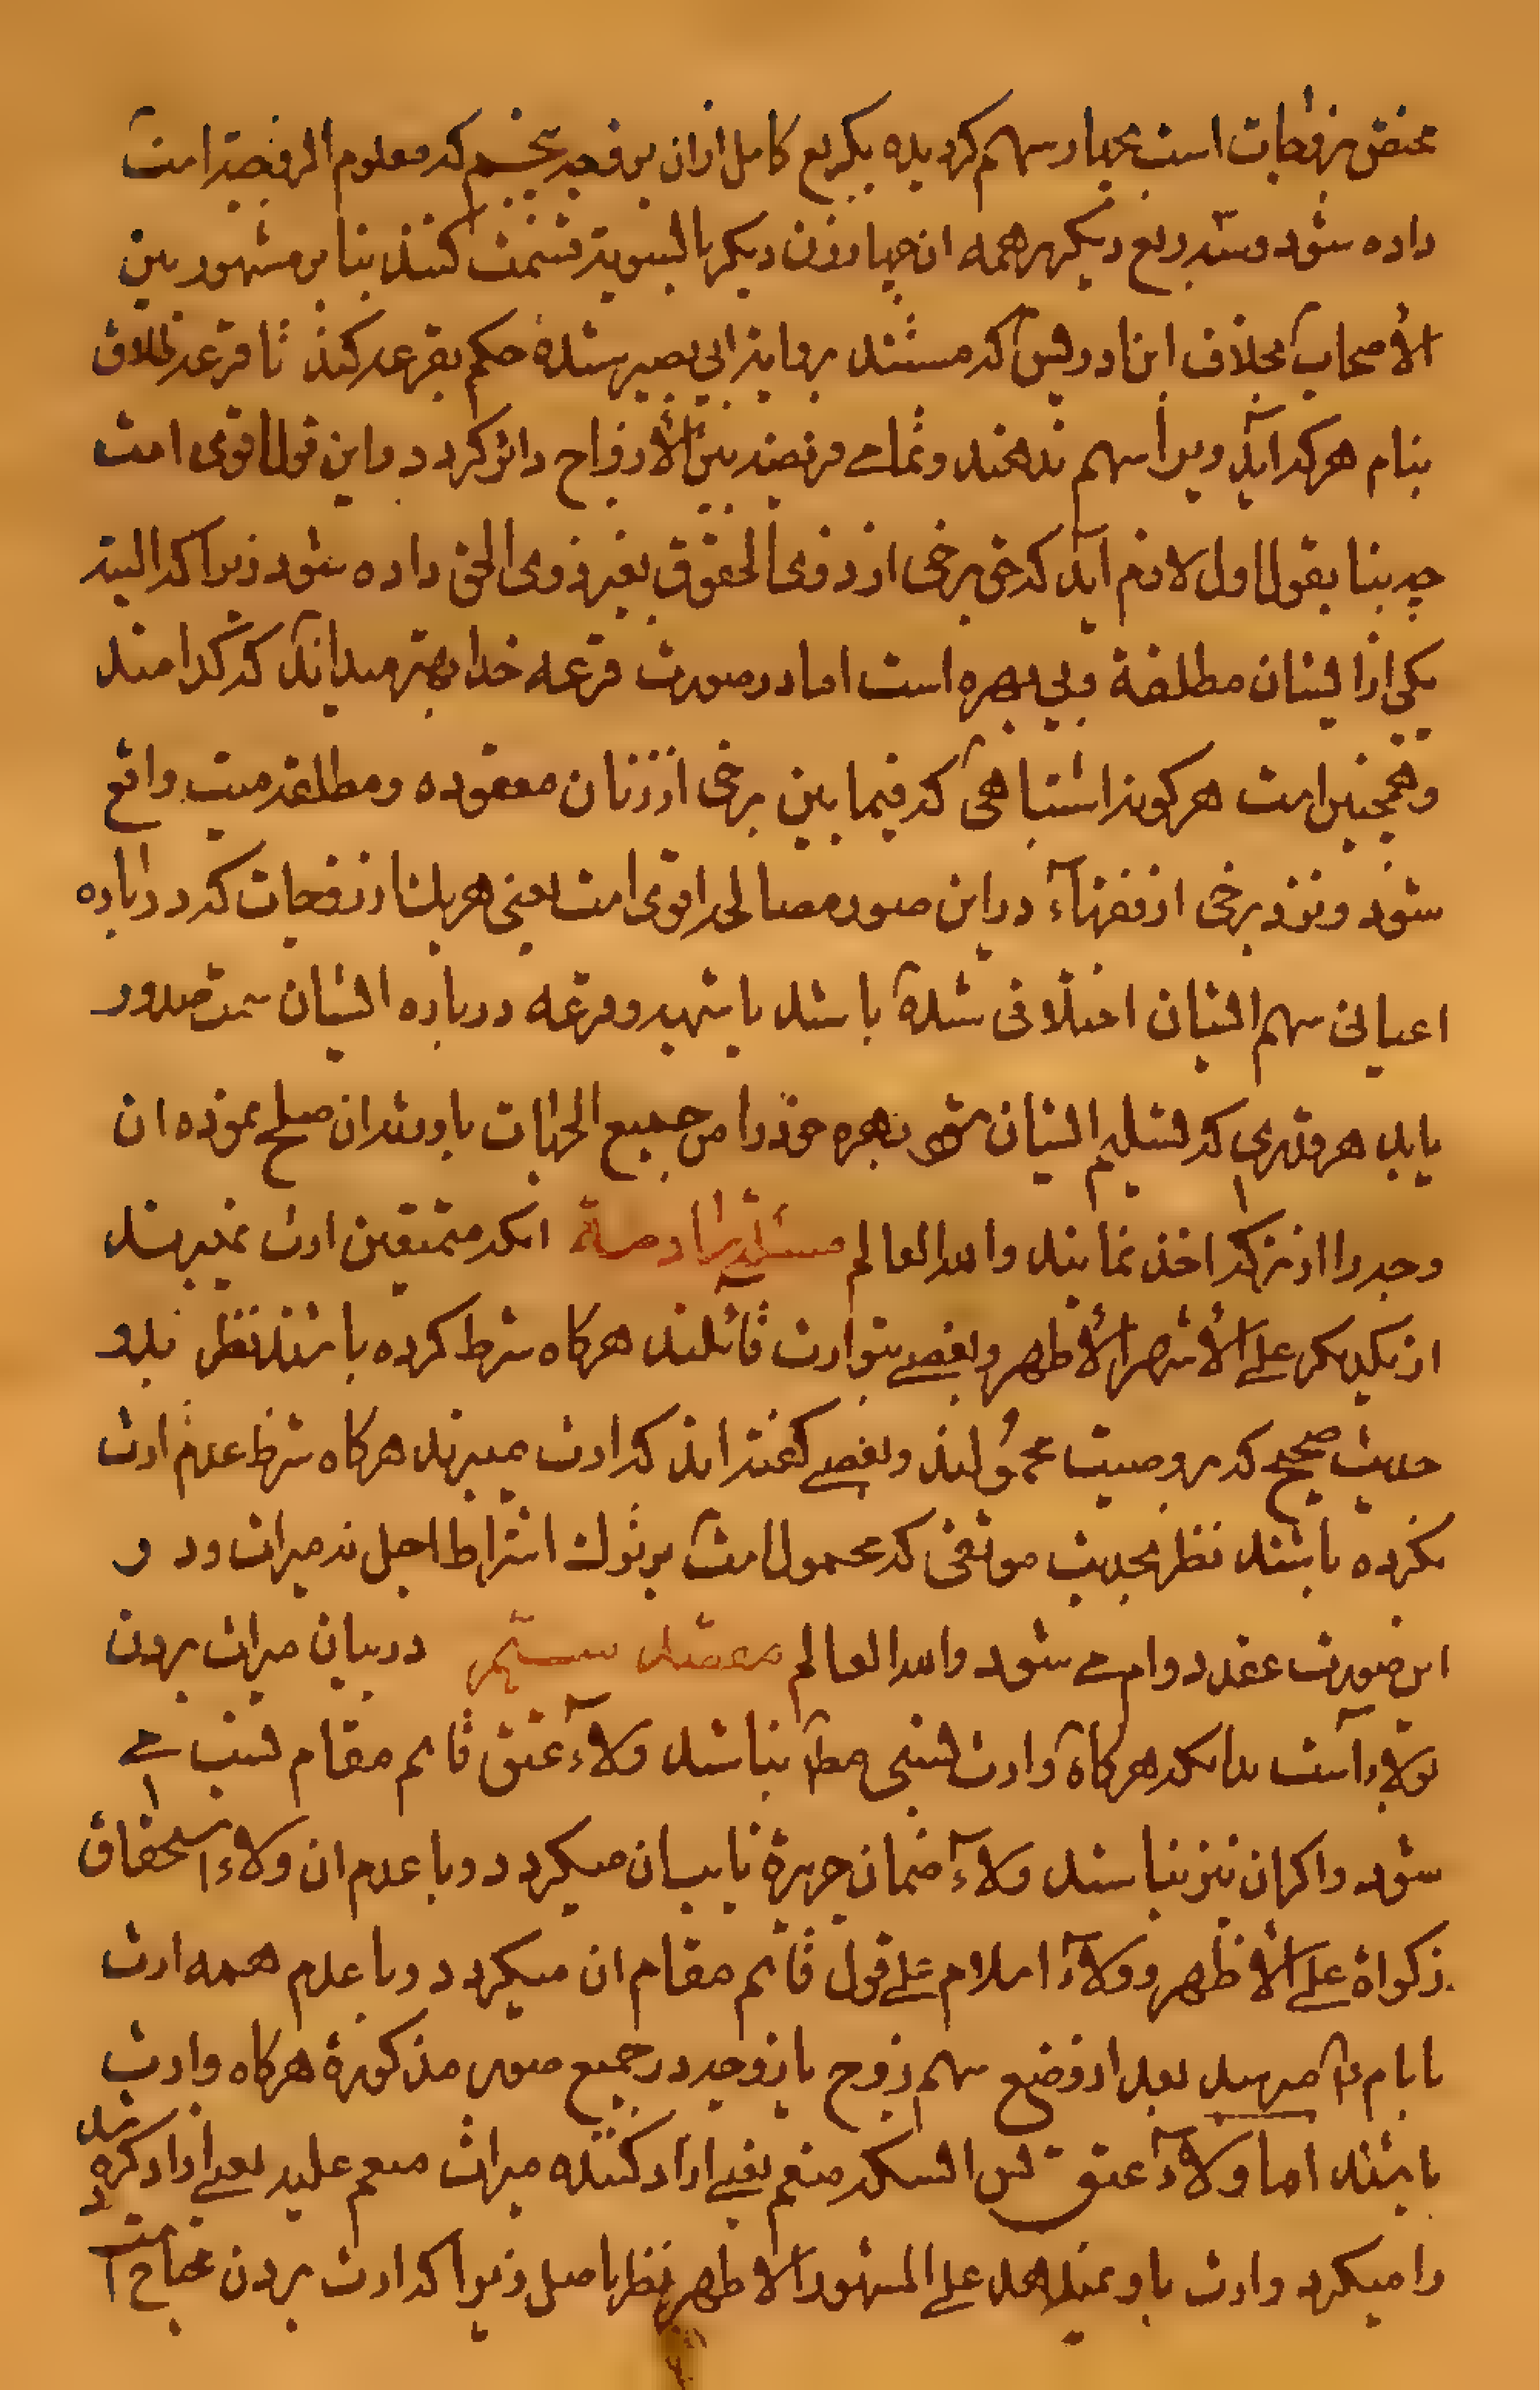 مختص بزوجات است بچهار سهم کردیده یکربع کامل ازان بزوجه پنجم که معلوم الزوجیة است
داده شود و سه ربع دیکر بر همه ان چهار زن دیکر بالسویة قسمت کنند بنا بر مشهور بین
الأصحاب بخلاف ابن ادریس که مستند بروایة ابی بصیر شده حکم بقرعه کند تا قرعه طلاق
بنام هرکه آید ویرا سهم ندهند و تمامے فریضه بین الأزواج دائر کردد و این قول اقوی است
چه بنا بقول اول لازم آید که حق برخی از ذوی الحقوق بغیر ذوی الحق داده شود زیرا که البته
یکی از ایشان مطلقة و بی بهره است اما در صورت قرعه خدا بهتر میداند که کدامند
و همچنین است هرکونه اشتباهی که فیما بین برخی از زنان معقوده و مطلقه میت واقع
شود و نزد برخی از فقهآء در این صور مصالحه اقوی است یعنی هر یک از زوجات که درباره
اعیانی سهم ایشان اختلافی شده باشد یا شبهه و قرعه درباره ایشان سمت صدور
یابد هر قدری که تسلیم ایشان شود بهره خود را من جمیع الجهات با ورثه ان صلح نموده ان
وجه را از ترکه اخذ نمایند والله العالم مسئلة سادسة انکه متمتعین ارث نمیبرند
از یکدیکر علے الأشهر الأظهر و بعضے بتوارث قآئلند هرکاه شرط کرده باشند نظر بدو
حدیث صحیح که بر وصیت محمولند و بعضے کفته اند که ارث میبرند هرکاه شرط عدم ارث
نکرده باشند نظر بحدیث موثقی که محمول است بر ترك اشتراط اجل نه میراث و در
این صورت عقد دوام مے شود والله العالم مقصد ششم در بیان میراث بردن
بولاء است بدانکه هرکاه وارث نسبی مطلقا نباشد ولاء عتق قآئم مقام نسب مے
شود و اکر ان نیز نباشد ولاء ضمان جریرة نایب ان میکردد و با عدم ان ولاء استحقاق
زکواة علے الأظهر و ولاء اسلام علے قول قآئم مقام ان میکردد و با عدم همه ارث
با امام ع میرسد بعد از وضع سهم زوج یا زوجه در جمیع صور مذکورة هرکاه وارث
باشند اما ولاء عتق پس انستکه منعم یعنے ازاد کننده میراث منعم علیه یعنے ازاد کرده شده
را میکرد و ارث باو نمیدهد علے المشهور الاظهر نظر باصل زیرا که ارث بردن محتاج است